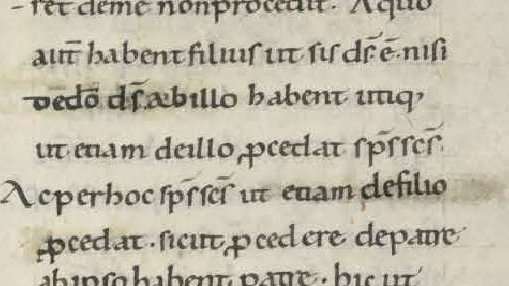 ret deme non procedit. A quo
aut̄ habent filius ut sit ds̄ ē nisi
de dō ds̄ ab illo habent utiq,
ut etiam de illo ꝓcedat sp̄s scs̄.
Ac per hoc sp̄s scs̄ ut etiam de filio
ꝓcedat. sicut ꝓcedere de patre
ab ipso habent patre. hic ut